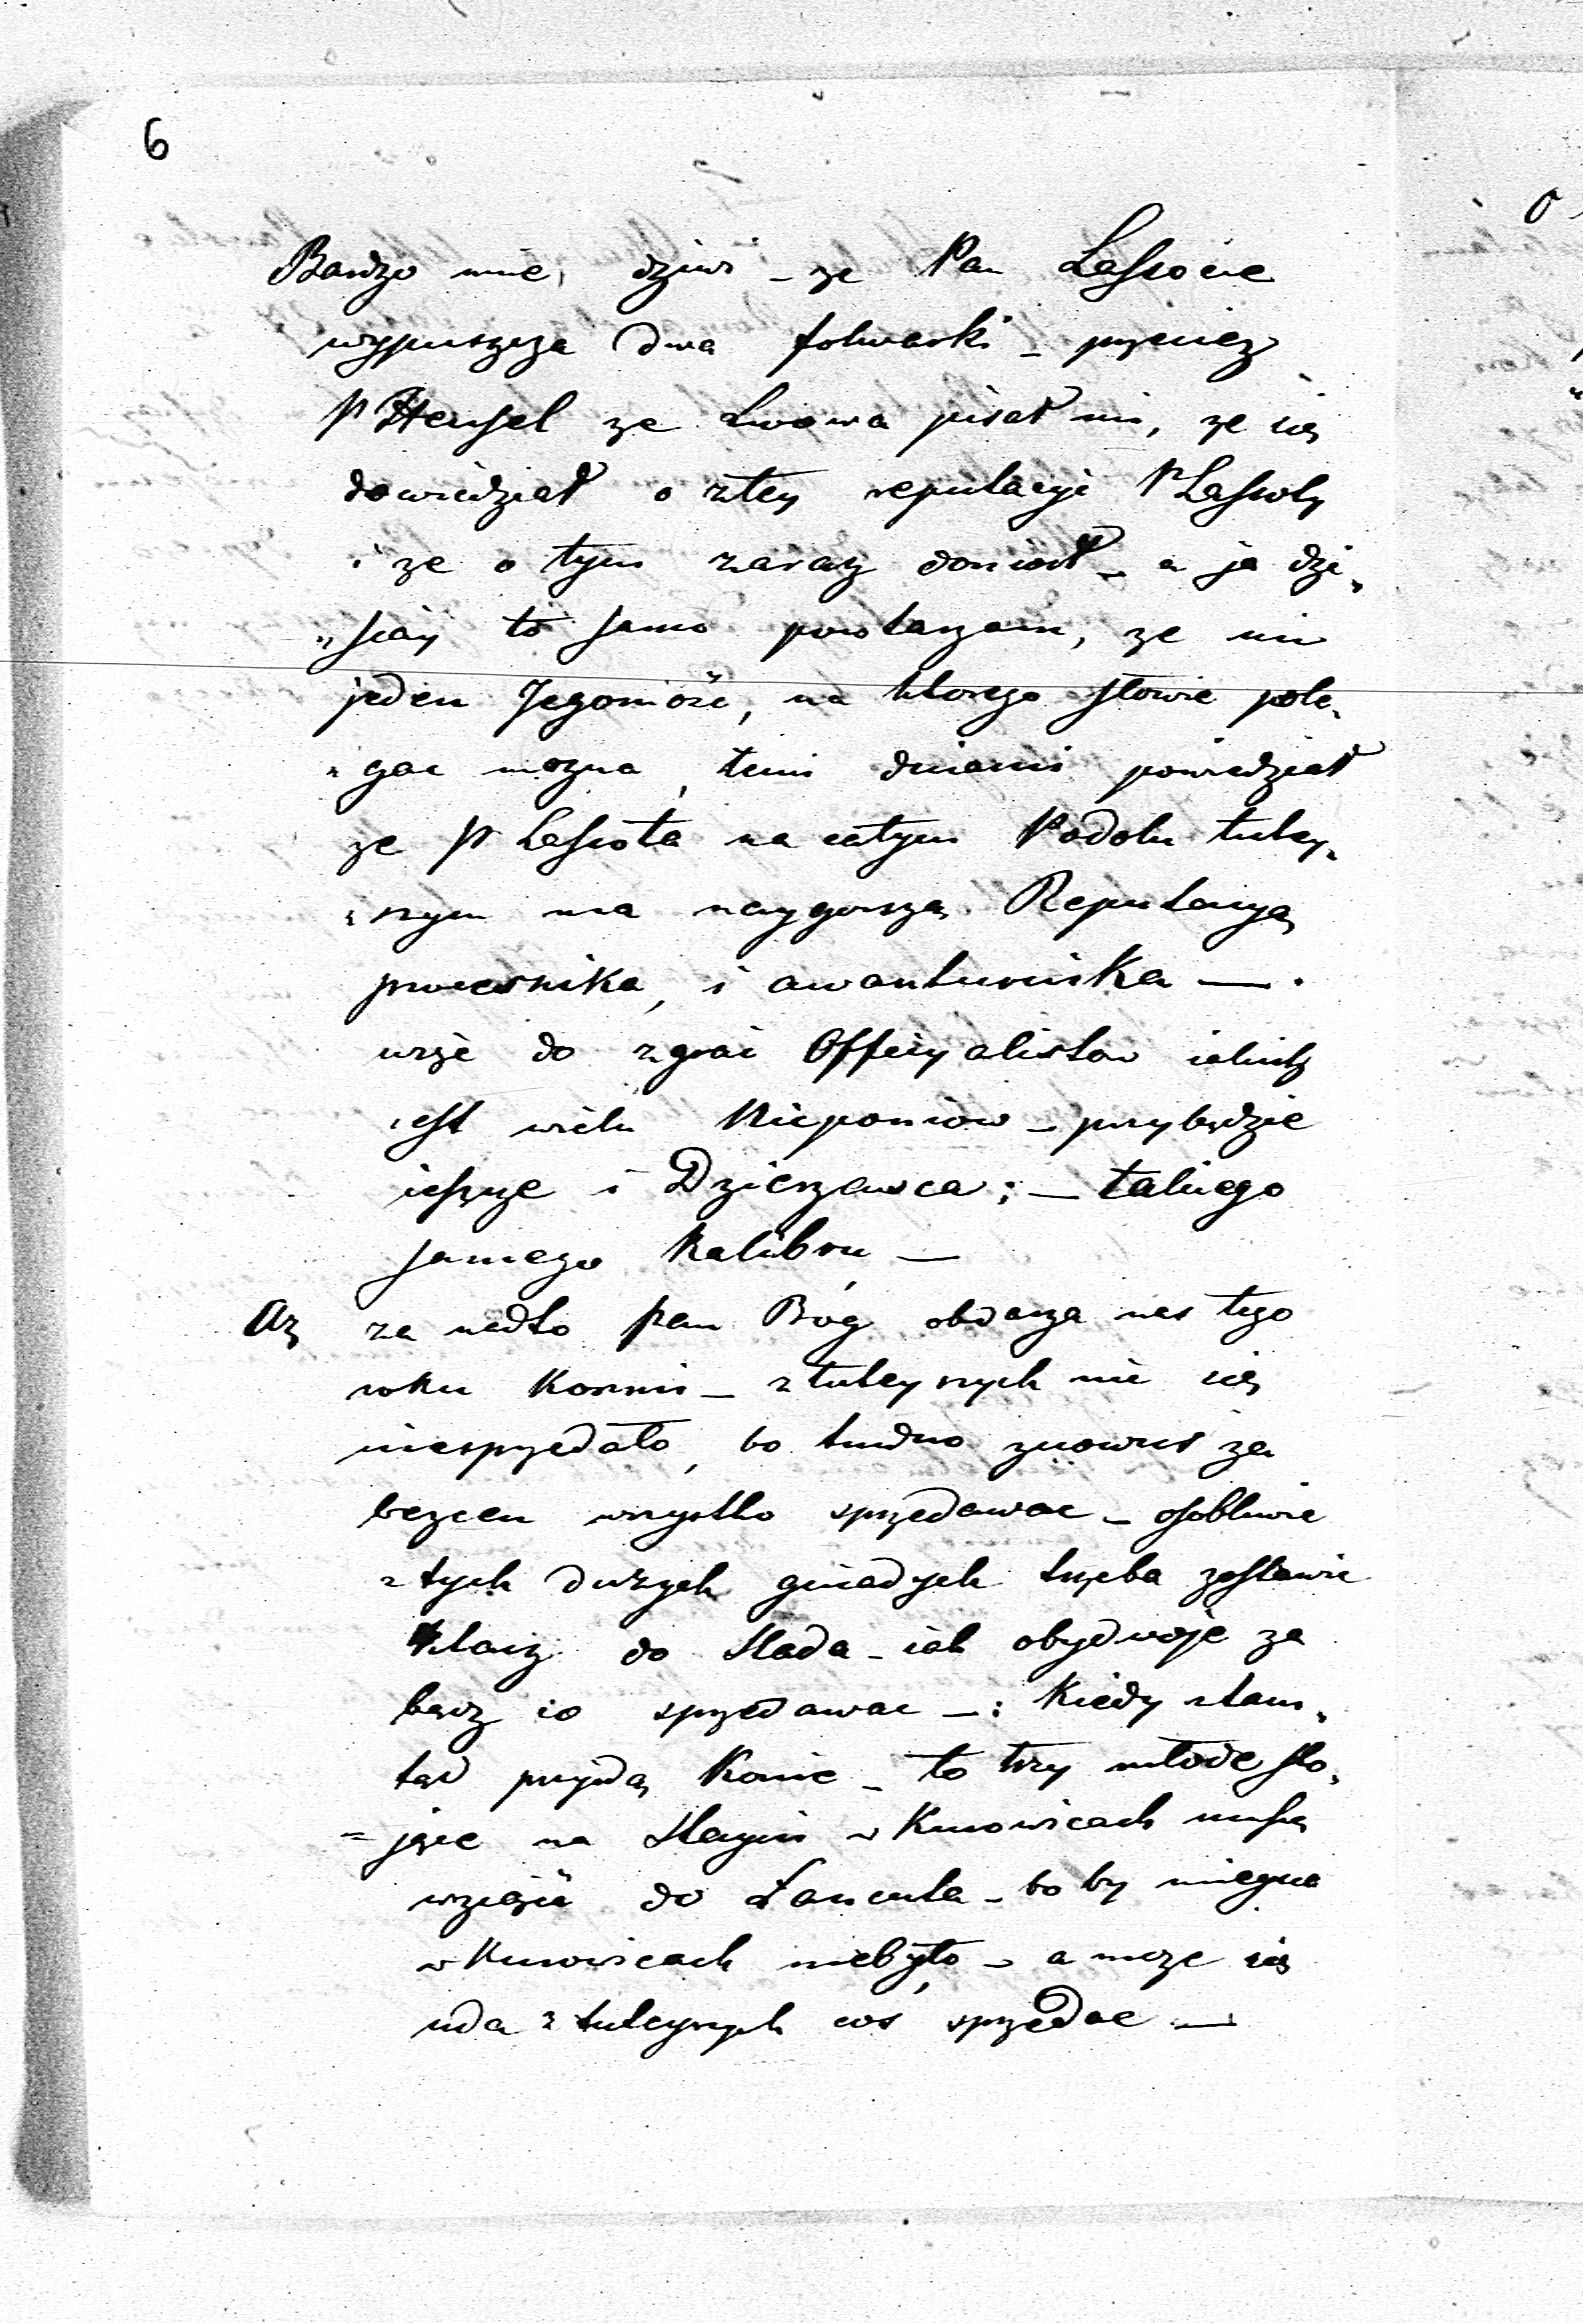 6
Bardzo mię dziwi – ze Pan Lassocie
wypuszcza dwa folwarki – przeciez
P Hensel ze Lwowa pisał mi, ze się
dowiedział o złey reputacyi P Lassoty
i ze o tym zaraz doniosł – a ja dzi„
„siay to samo powtarzam, ze mi
jeden Jegomość, na ktorego słowie pole„
„gac mozna, temi dniami powiedział
ze P Lassota na całym Podolu tutey„
„szym ma naygorszą Reputacyą
procesnika, i awanturnika —
wszé do zgrai Officyalistow iakich
iest wielu Nieponiow – przybędzie
ieszcze i Dzierzawca; – takiego
samego Kalibru —
Az za nadto Pan Bóg obdarza nas tego
roku Konmi – z tuteyszych nic się
niesprzedało, bo trudno znowus za
bezcen wszystko sprzedawac – osobliwie
z tych duzych gniadych trzeba zostawic
klacz do stada – iak obydwoje za
bądz co sprzedawac –: Kiedy stam„
tąd przyidą Konie – to trzy młode sto„
=jące na stayni w Kurowicach muszą
wziąść do Łancuta – bo by mieysca
w Kurowicach niebyło – a moze się
uda z tuteyszych cos sprzedac —